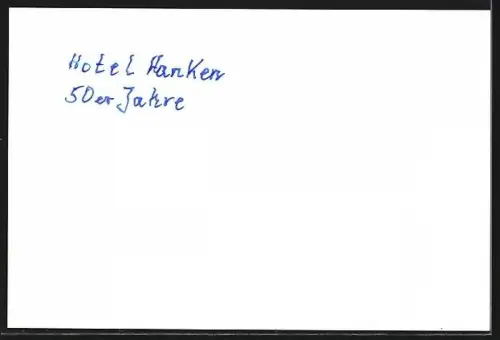 Hotel Hanken
50er Jahre